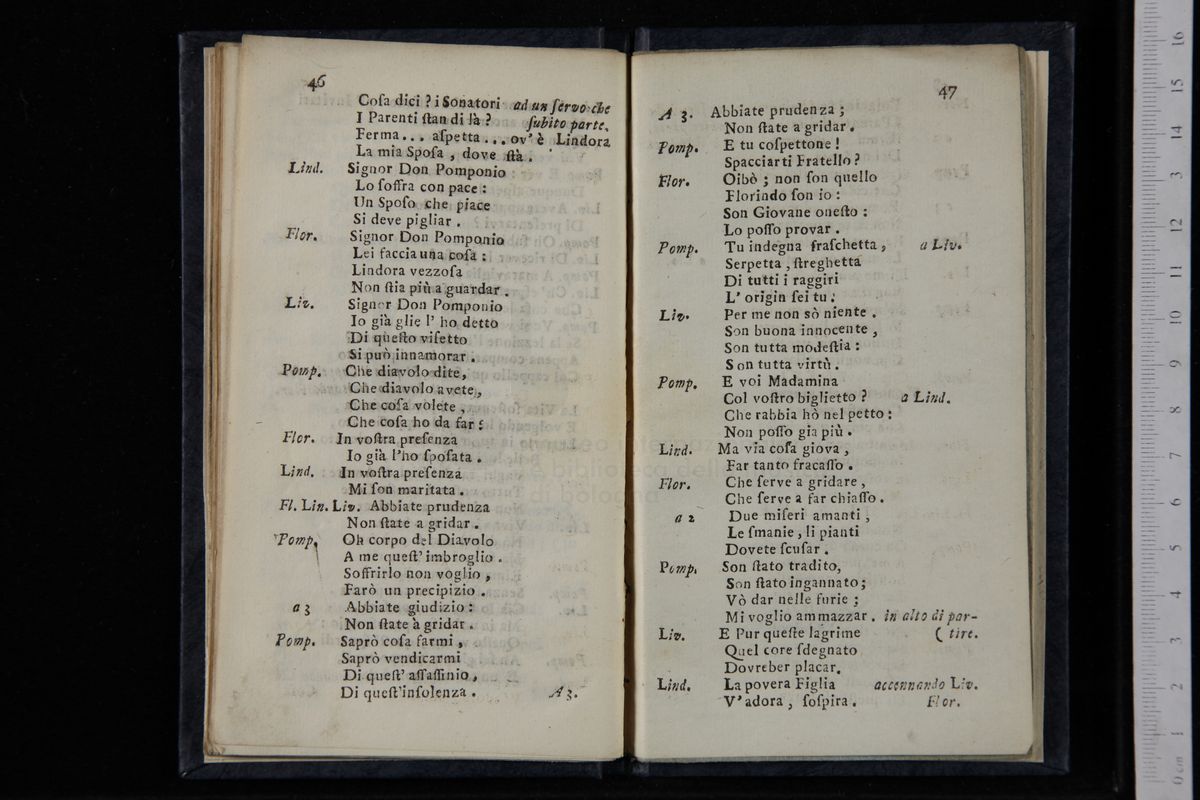 46
Coſa dici ? i Sonatori ad un ſervo che
I Parenti ſtan di là ? ſubito parte.
Ferma... aſpetta ... ov' è Lindora
La mia Spoſa , dove ſtà .
Lind. Signor Don Pomponio
Lo ſoffra con pace :
Un Spoſo che piace
Si deve pigliar .
Flor. Signor Don Pomponio
Lei faccia una coſa :
Lindora vezzoſa
Non ſtia più a guardar .
Liv. Signor Don Pomponio
Io già glie l' ho detto
Di queſto viſetto
Si può innamorar .
Pomp. Che diavolo dite,
Che diavolo avete,
Che coſa volete ,
Che coſa ho da far :
Flor. In voſtra preſenza
Io già l'ho ſpoſata .
Lind. In voſtra preſenza
Mi ſon maritata .
Fl. Lin. Liv. Abbiate prudenza
Non ſtate a gridar .
Pomp. Oh corpo del Diavolo
A me queſt' imbroglio .
Soffrirlo non voglio ,
Farò un precipizio .
a 3 Abbiate giudizio :
Non ſtate a gridar .
Pomp. Saprò coſa farmi ,
Saprò vendicarmi
Di queſt' aſſaſſinio ,
Di queſt'inſolenza . A 3.
47
A 3. Abbiate prudenza ;
Non ſtate a gridar .
Pomp. E tu coſpettone !
Spacciarti Fratello ?
Flor. Oibò ; non ſon quello
Florindo ſon io :
Son Giovane oneſto :
Lo poſſo provar .
Pomp. Tu indegna fraſchetta , a Liv.
Serpetta , ſtreghetta
Di tutti i raggiri
L' origin ſei tu :
Liv. Per me non sò niente .
Son buona innocente ,
Son tutta modeſtia :
Son tutta virtù .
Pomp. E voi Madamina
Col voſtro biglietto ? a Lind.
Che rabbia hò nel petto :
Non poſſo gia più .
Lind. Ma via coſa giova ,
Far tanto fracaſſo .
Flor. Che ſerve a gridare ,
Che ſerve a far chiaſſo .
a 2 Due miſeri amanti ,
Le ſmanie , li pianti
Dovete ſcuſar .
Pomp. Son ſtato tradito,
Son ſtato ingannato ;
Vò dar nelle furie ;
Mi voglio ammazzar . in alto di par-
Liv. E Pur queſte lagrime ( tire.
Quel core ſdegnato
Dovreber placar.
Lind. La povera Figlia accennando Liv.
V' adora , ſoſpira . Flor.